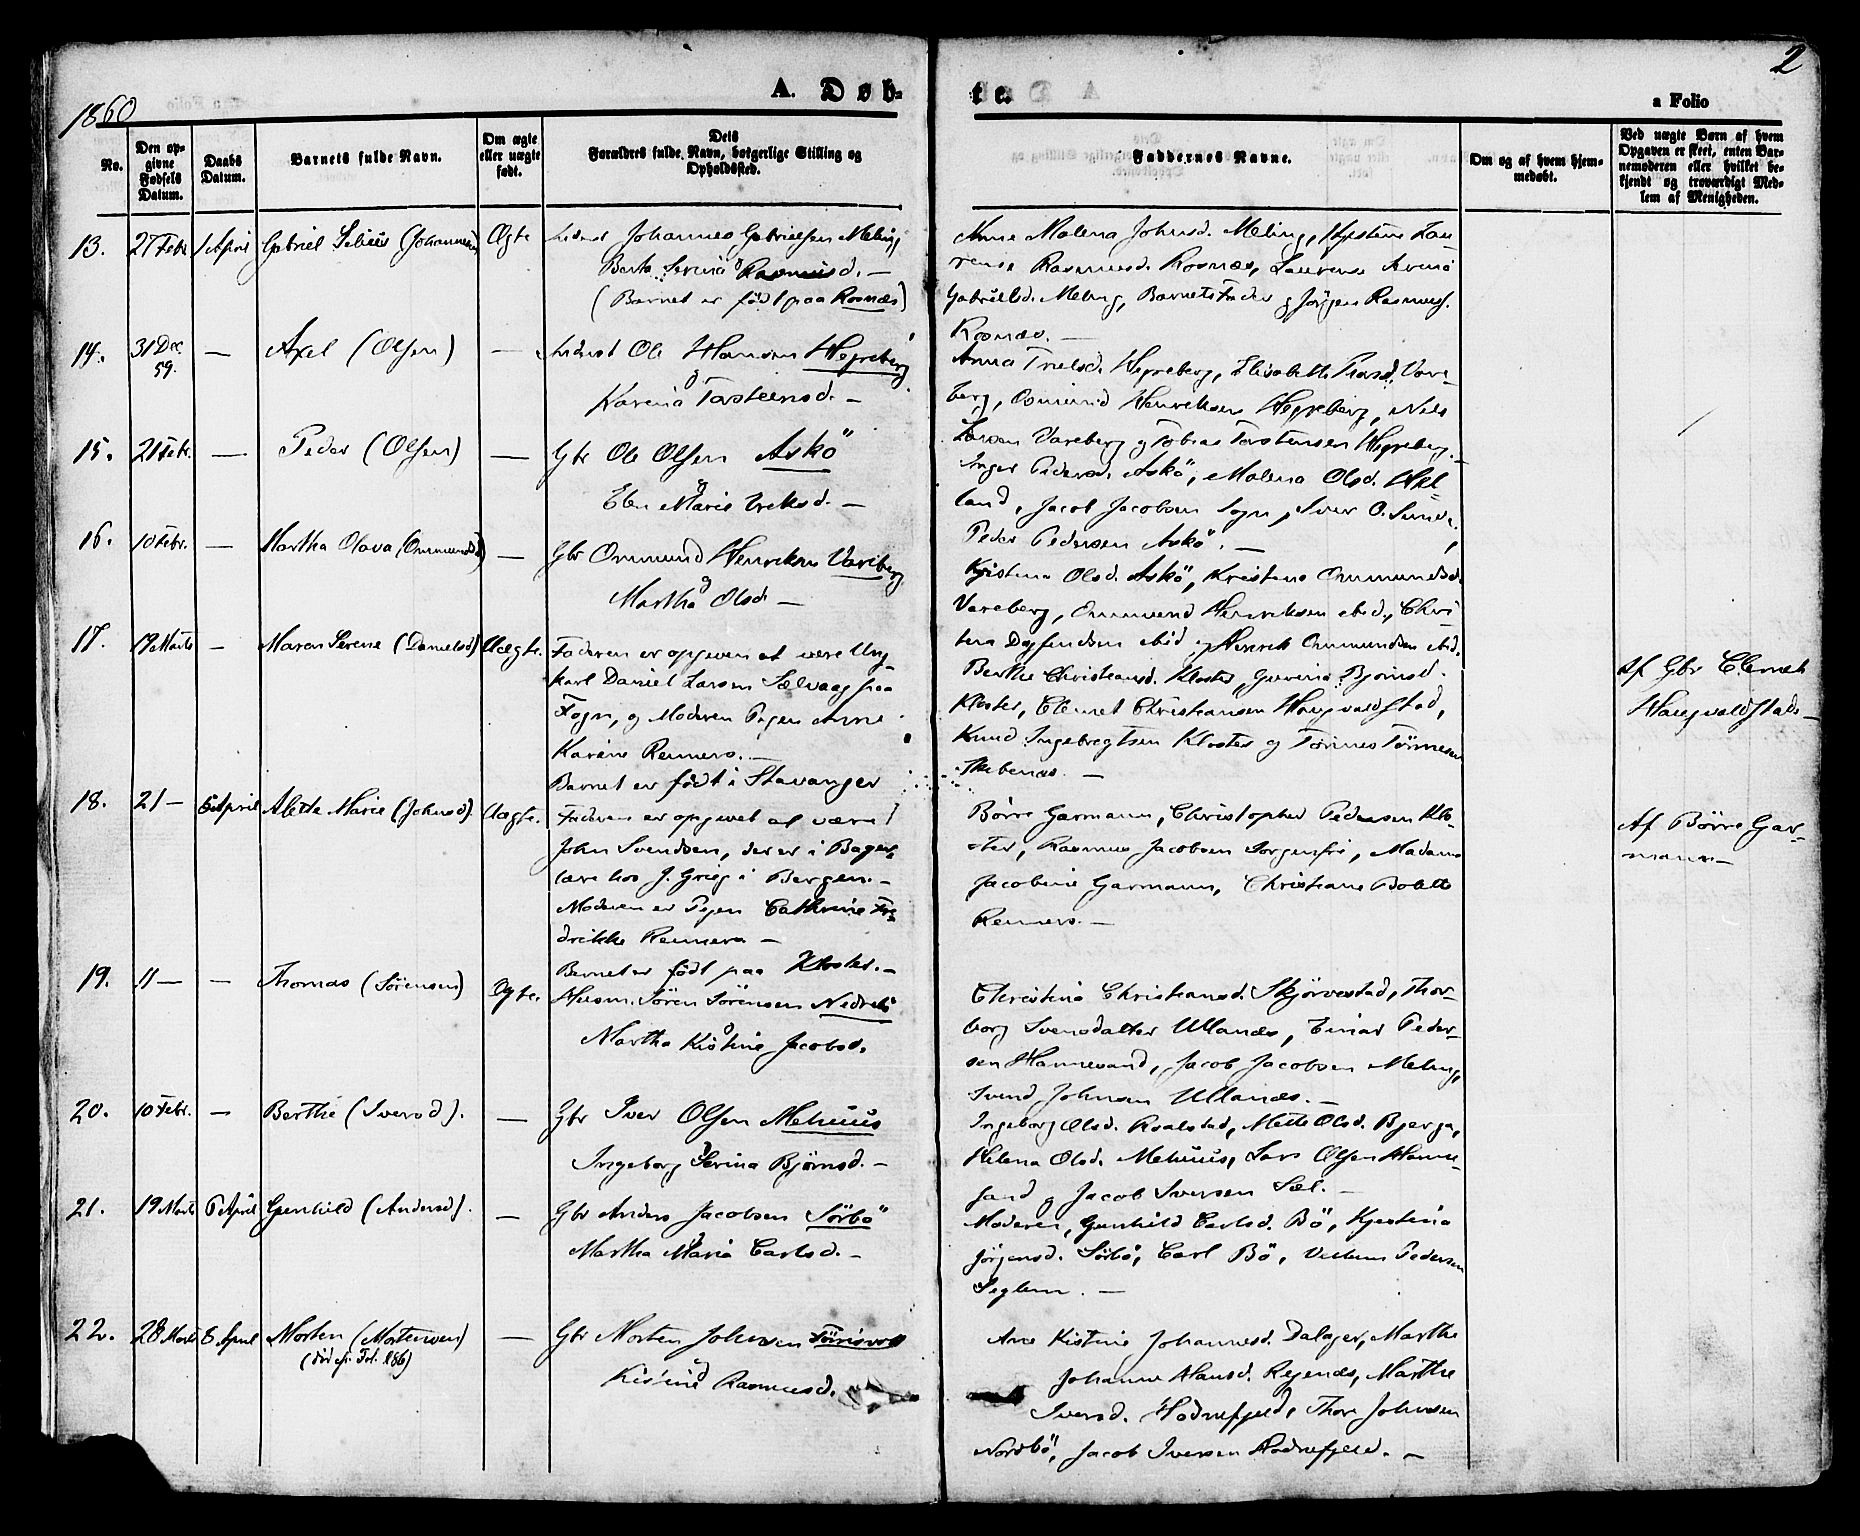 1860
A. Døb-
te.
2
a Folio
No.
Den op-
givne
Fødsels
Datum.
Daabs
Datum.
Barnets fulde Navn.
Om ægte
eller uægte
født.
Dets
Forældres fulde Navn, borgerlige Stilling og
Opholdssted.
Faddernes Navne.
Om og af hvem hjem-
medøbt.
Ved uægte Børn af hvem
Opgaven er skeet, enten Bar-
nemoderen eller hvilket be-
kjendt og troværdigt Med-
lem af Menigheden.
13. 27 Febr 1 April Gabriel (Johannesen) Ægte
Johannes Gabrielsen Meling
Berta Serina Rasmusd. —
(Barnet er født paa Rosnæs)
Anne Malena Johnsd. Meling,
Rasmusd. Rosnæs, Laurense
Gabrielsd. Meling, Barnets Fader og Jörgen Rasmus.
Rosnæs. —
14. 31 Dec. 59. — Axel (Olsen) —
Ole Hansen Hegreberg
og
Karina Torsteensd. —
Anna Hegreberg, Elisabeth Vare-
berg, Osmund Henriksen Hegreberg, Niels
Larsen Vareberg og Tobias Torstensen Hegreberg. —
15. 21 Febr. — Peder (Olsen) —
Gbr Ole Olsen Askö
og
Elen Marie —
Inger Pedersd. Askö, Malena Olsd. Hel-
land, Jacob Jacobsen Fogn, Iver O. Sunde,
Peder Pedersen Askö. —
16. 10 Febr. — Martha Olava (Ommundsd.) —
Gbr Ommund Henriksen Vareberg
og
Martha Olsd. —
Kjistena Olsd. Askö, Kristene Ommundsd.
Vareberg, Ommund Henriksen ibid., Chri-
stena ibid. og Henrik Ommundsen ibid.
17. 19 Marts — Maren Serene (Danielsd) Uægte.
Faderen er opgiven at være Ung-
karl Daniel Larsen Sælvaag paa
Fogn, og Moderen Pigen Anne
Karine Reimers. —
Barnet er født i Stavanger
Berthe Christiansd. Kloster, Björnsd.
Kloster, Clemet Christiansen Haugvaldstad,
Knud Ingebregtsen Kloster og Törres Törresen
Skebenæs. —
Af Gbr Clemet
Haugvaldstad —
18. 21 — 5 April Aletta Marie (Johnsd). Uægte.
Faderen er opgivet at være
John Svendsen, der er i Bager-
lære hos J. Grieg i Bergen. —
Moderen er Pigen Cathrine Fre-
drikke Reimers —
Barnet er født paa Kloster. —
Börre Garmann, Christopher Pedersen Klo-
ster, Rasmus Jacobsen Sorgenfri, Madame
Jacobine Garmann, Christiane Bolette
Reimers. —
Af Börre Gar-
mann —
19. 11 — — Thomas (Sörensen) Ægte.
Husm. Sören Sörensen Nedreli
og
Martha Kistine Jacobsd.
Christine Christiansd. Skjörvestad, Thor-
borg Svensdatter Ullanæs, Einar Peder-
sen Hannesand, Jacob Jacobsen Meling,
Svend Johnsen Ullanæs. —
20. 10 Febr. — Berthe (Iversd). —
Gbr Iver Olsen Mehuus
og
Ingeborg Serina Björnsd. —
Ingeborg Olsd. Roalstad, Mette Olsd. Bjerga,
Helena Olsd. Mehuus, Lars Olsen Hanne-
sand og Jacob Iversen Sæl. —
21. 19 Marts 6 April Gunhild (Andersd). —
Gbr Anders Jacobsen Sörbö
og
Martha Maria Carlsd. —
Moderen, Gunhild Carlsd. Bö, Kjestena
Jörgensd. Sörbö, Carl Bö, Villum Pedersen
Seglem. —
22. 28 Marts 8 April Morten (Mortensen) —
(död cfr. Fol. 186)
Gbr Morten Johnsen
og
Kistine Rasmusd.
Ane Kistine Johannesd. Dalager, Marthe
Johanne Hansd. Regenæs, Marthe
Iversd. Hodnefjeld, Thore Johnsen
Nordbö, Jacob Iversen Hodnefjeld. —